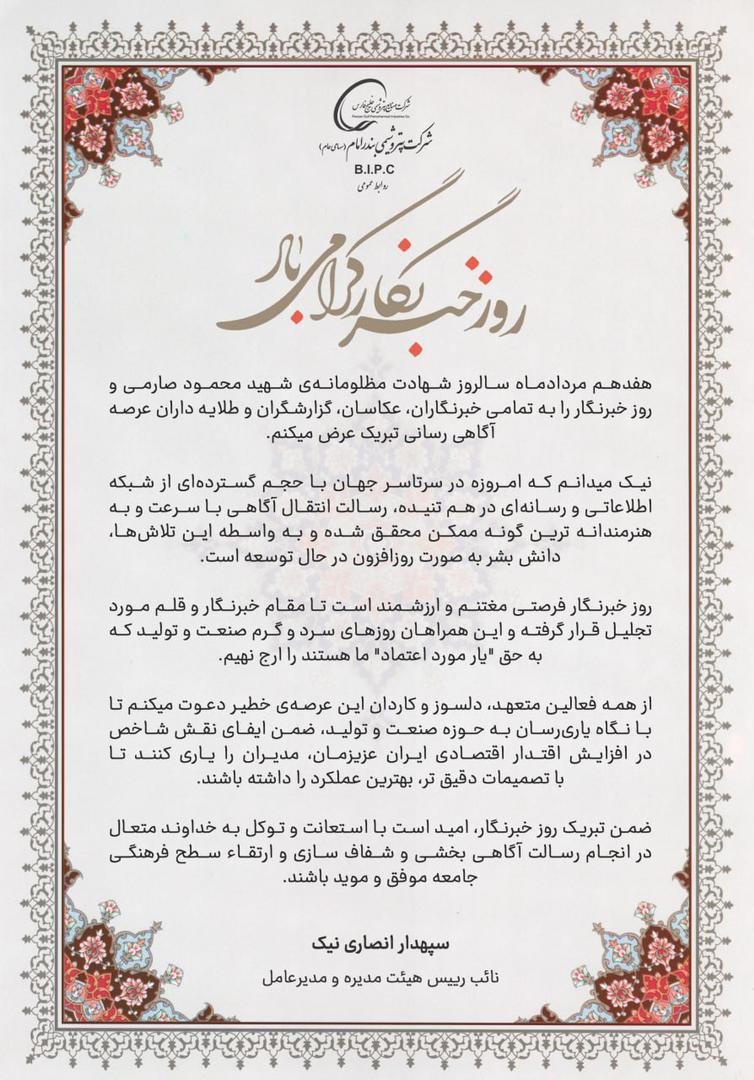 شرکت صنایع پتروشیمی خلیج فارس
Persian Gulf Petrochemical Industries Co.
شرکت پتروشیمی بندر امام (سهامی عام)
B.I.P.C
روابط عمومی
روز خبرنگار گرامی باد
هفدهم مردادماه سالروز شهادت مظلومانه‌ی شهید محمود صارمی و
روز خبرنگار را به تمامی خبرنگاران، عکاسان، گزارشگران و طلایه داران عرصه
آگاهی رسانی تبریک عرض میکنم.
نیک میدانم که امروزه در سرتاسر جهان با حجم گسترده‌ای از شبکه
اطلاعاتی و رسانه‌ای در هم تنیده، رسالت انتقال آگاهی با سرعت و به
هنرمندانه ترین گونه ممکن محقق شده و به واسطه این تلاش‌ها،
دانش بشر به صورت روزافزون در حال توسعه است.
روز خبرنگار فرصتی مغتنم و ارزشمند است تا مقام خبرنگار و قلم مورد
تجلیل قرار گرفته و این همراهان روزهای سرد و گرم صنعت و تولید که
به حق "یار مورد اعتماد" ما هستند را ارج نهیم.
از همه فعالین متعهد، دلسوز و کاردان این عرصه‌ی خطیر دعوت میکنم تا
با نگاه یاری‌رسان به حوزه صنعت و تولید، ضمن ایفای نقش شاخص
در افزایش اقتدار اقتصادی ایران عزیزمان، مدیران را یاری کنند تا
با تصمیمات دقیق تر، بهترین عملکرد را داشته باشند.
ضمن تبریک روز خبرنگار، امید است با استعانت و توکل به خداوند متعال
در انجام رسالت آگاهی بخشی و شفاف سازی و ارتقاء سطح فرهنگی
جامعه موفق و موید باشند.
سپهدار انصاری نیک
نائب رییس هیئت مدیره و مدیرعامل